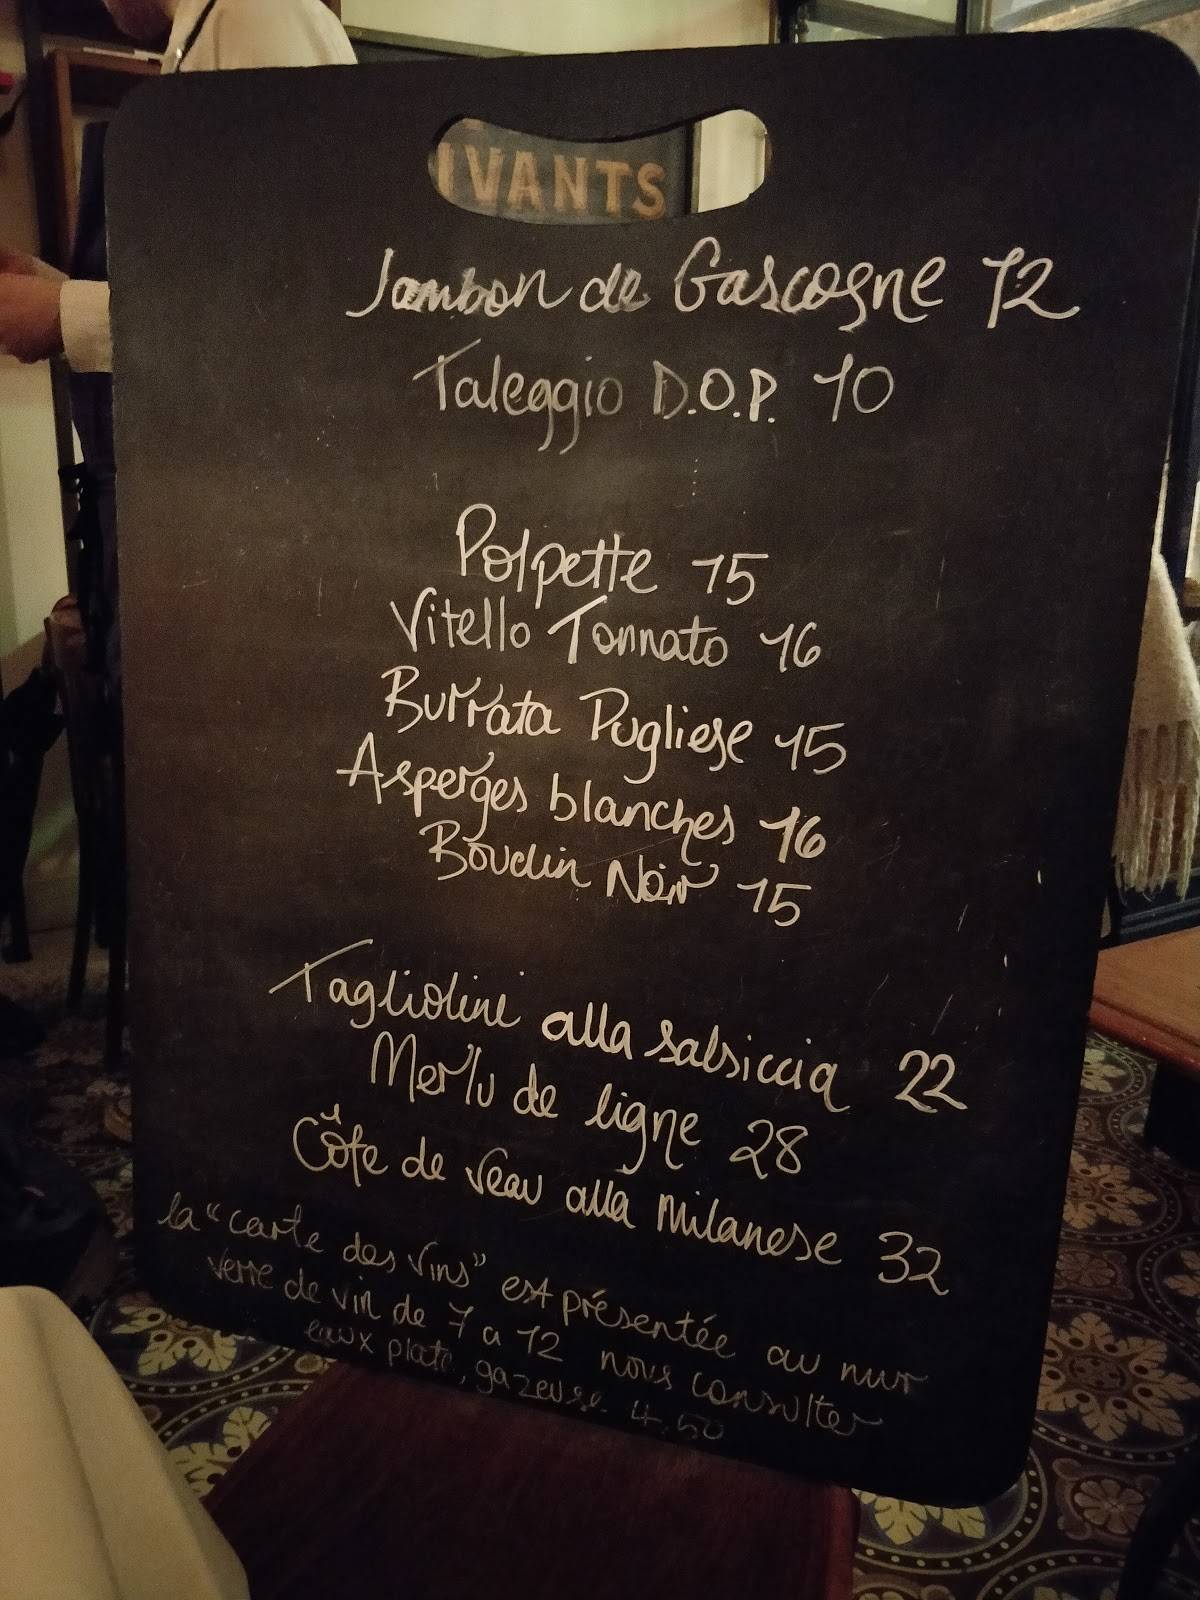 IVANTS
Jambon de Gascogne 12
Taleggio D.O.P. 10
Polpette 15
Vitello Tonnato 16
Burrata Pugliese 15
Asperges blanches 16
Boudin Noir 15
Tagliolini alla salsiccia 22
Merlu de ligne 28
Côte de veau alla milanese 32
la "carte des vins" est présentée au mur
verre de vin de 7 a 12 nous consulter
eaux plate, gazeuse 4,50